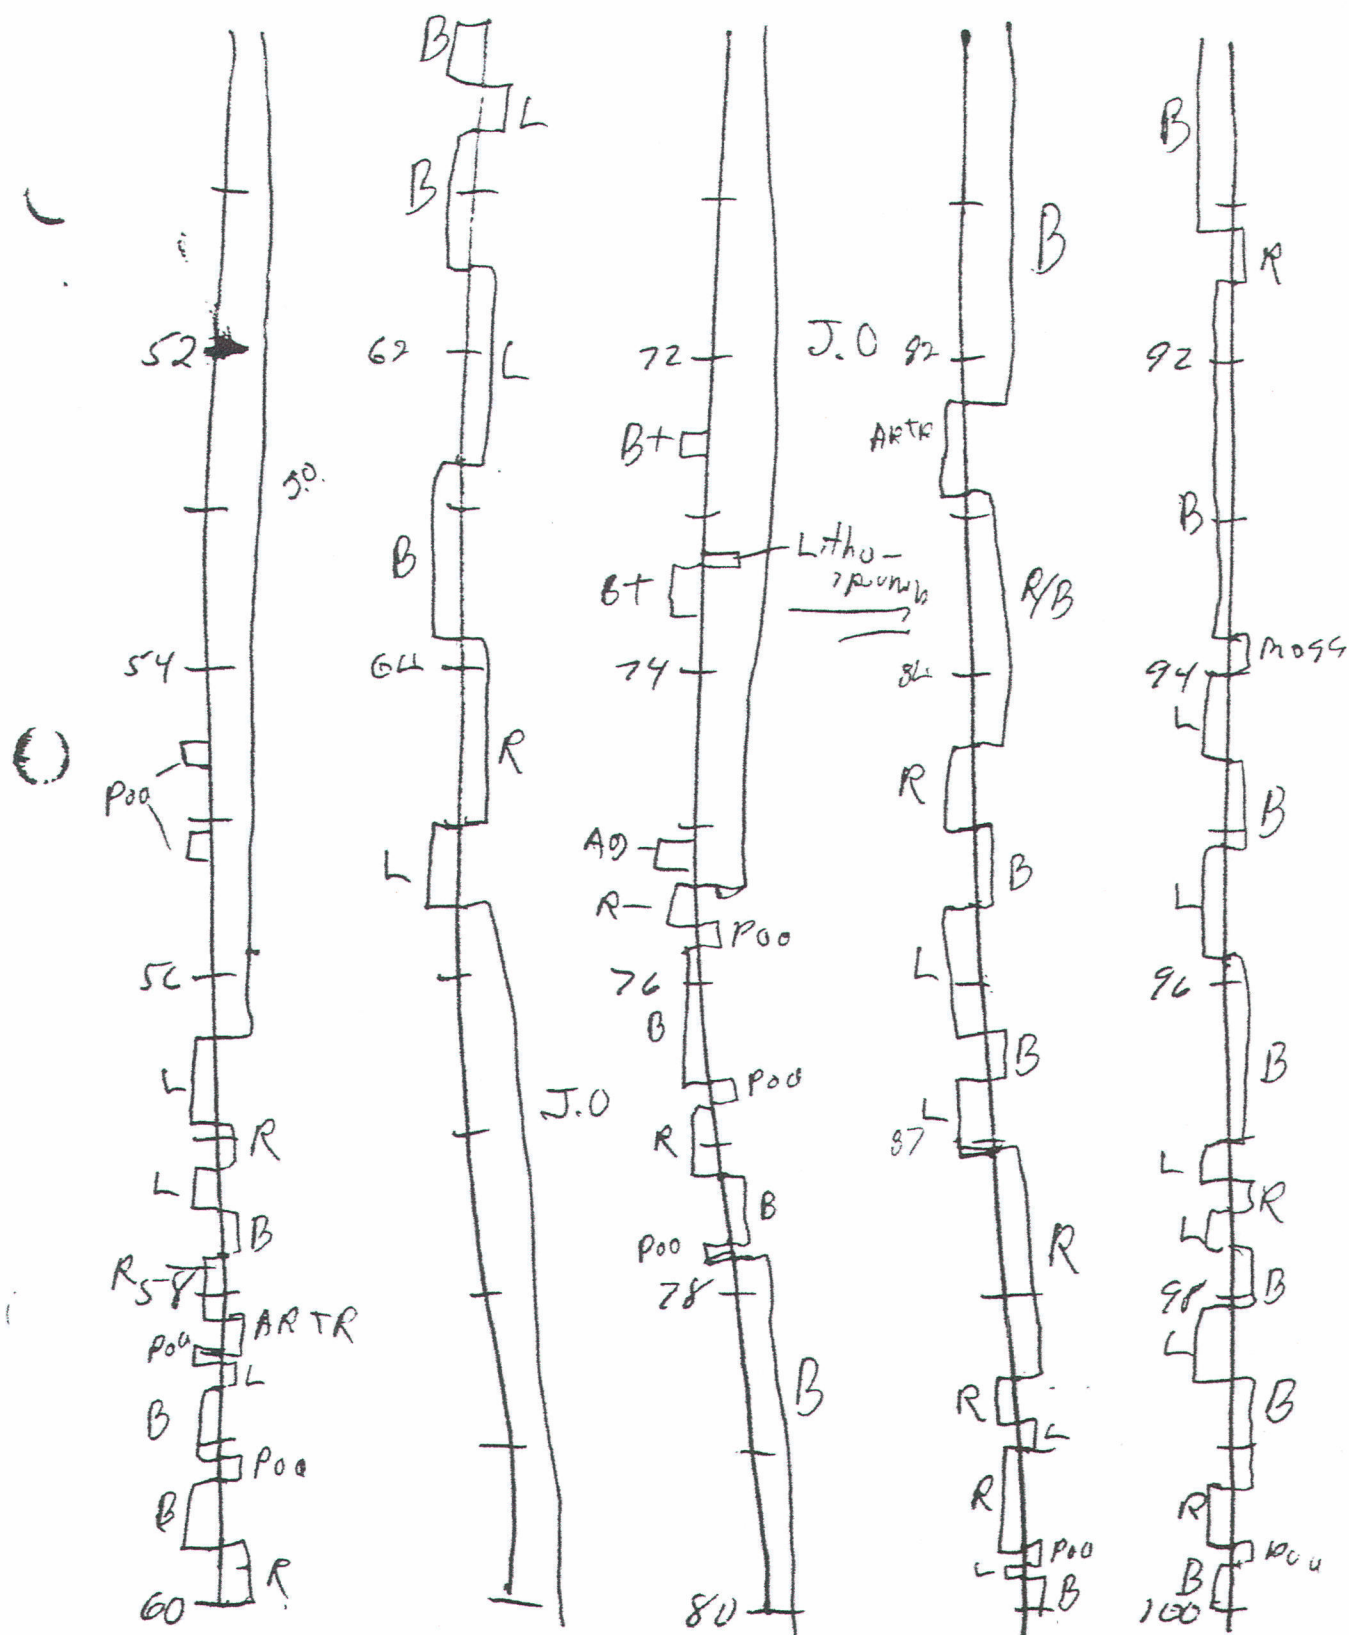 52
J.O.
54
Poa
56
L
R
L
B
R
58
ARTR
Poa
L
B
Poa
B
R
60
B
L
B
62
L
B
64
R
L
J.O
72
J.O
B+
Litho-
B+
74
AD
R-
Poa
76
B
Poa
R
B
Poa
78
B
80
B
82
ARTR
R/B
84
R
B
L
B
L
87
R
R
L
R
Poa
L
B
B
R
92
B
moss
94
L
B
L
96
B
L
R
L
B
98
L
B
R
Poa
B
100